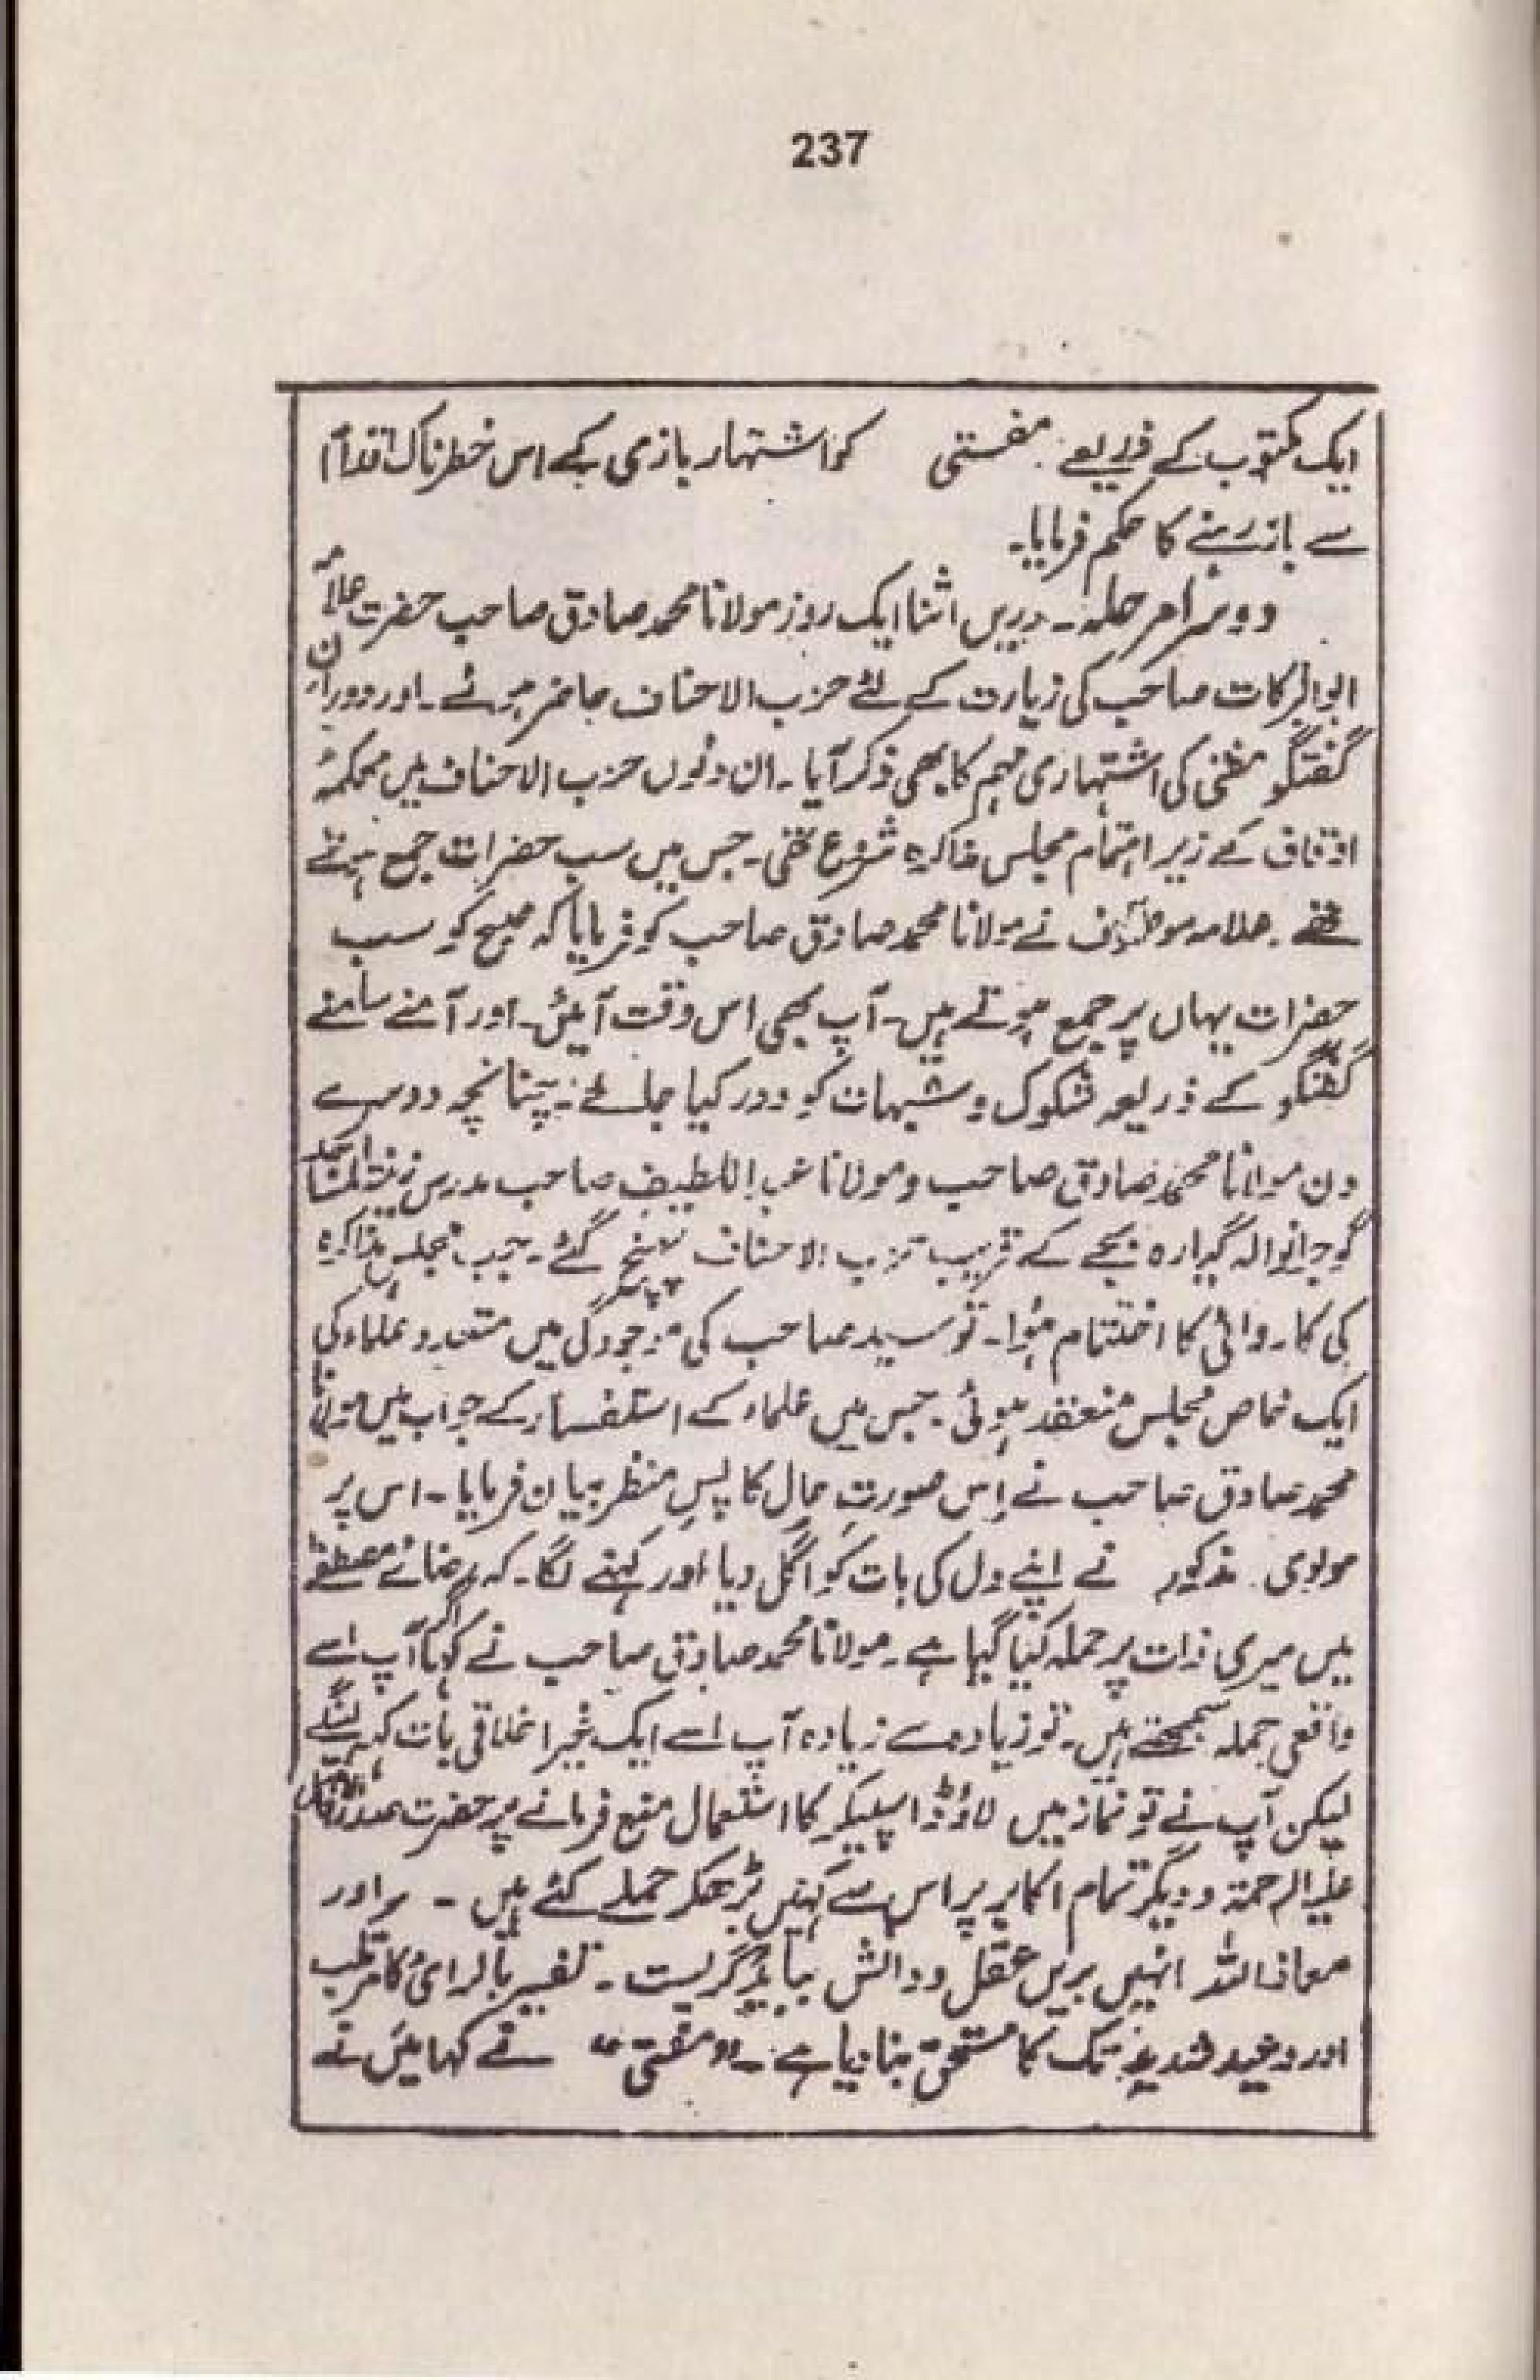 237
ایک مکتوب کے ذریعے مفتی کو اشتہار بازی کے اس خطرناک اقدام
سے باز رہنے کا حکم فرمایا۔
دوسرا مرحلہ ۔ دریں اثنا ایک روز مولانا محمد صادق صاحب حضرت علامہ
ابوالبرکات صاحب کی زیارت کے لئے حزب الاحناف حاضر ہوئے ۔ اور دوران
گفتگو مفتی کی اشتہاری مہم کا بھی ذکر آیا ۔ ان دنوں حزب الاحناف میں محکمۂ
اوقاف کے زیر اہتمام مجلس مذاکرہ شروع تھی ۔ جس میں سب حضرات جمع ہوتے
تھے ۔ علامہ موصوف نے مولانا محمد صادق صاحب کو فرمایا کہ صبح کو سب
حضرات یہاں پر جمع ہوتے ہیں ۔ آپ بھی اس وقت آئیں ۔ اور آمنے سامنے
گفتگو کے ذریعہ شکوک و شبہات کو دور کیا جائے ۔ چنانچہ دوسرے
دن مولانا محمد صادق صاحب و مولانا عبد اللطیف صاحب مدرس زینت المساجد
گوجرانوالہ گیارہ بجے کے قریب حزب الاحناف پہنچ گئے ۔ جب مجلس مذاکرہ
کی کاروائی کا اختتام ہؤا ۔ تو سید صاحب کی موجودگی میں متعدد علماء کی
ایک خاص مجلس منعقد ہوئی ۔ جس میں علماء کے استفسار کے جواب میں مولانا
محمد صادق صاحب نے اِس صورتِ حال کا پسِ منظر بیان فرمایا ۔ اس پر
مولوی مذکور نے اپنے دل کی بات کو اگل دیا اور کہنے لگا ۔ کہ رضائے مصطفےٰ
میں میری ذات پر حملہ کیا گیا ہے ۔ مولانا محمد صادق صاحب نے کہا اگر آپ اسے
واقعی حملہ سمجھتے ہیں ۔ تو زیادہ سے زیادہ آپ اسے ایک غیر اخلاقی بات کہہ لینگے
لیکن آپ نے تو نماز میں لاؤڈ اسپیکر کا استعمال منع فرمانے پر حضرت صدرالافاضل
علیہ الرحمۃ و دیگر تمام اکابر پر اس سے کہیں بڑھکر حملے کئے ہیں ۔ اور
معاذ اللہ انہیں بریں عقل و دانش بباید گریست ۔ تفسیر بالرائ کا مرتکب
اور وعید شدید تک کا مستحق بنا دیا ہے ۔ "مفتی" نے کہا میں نے